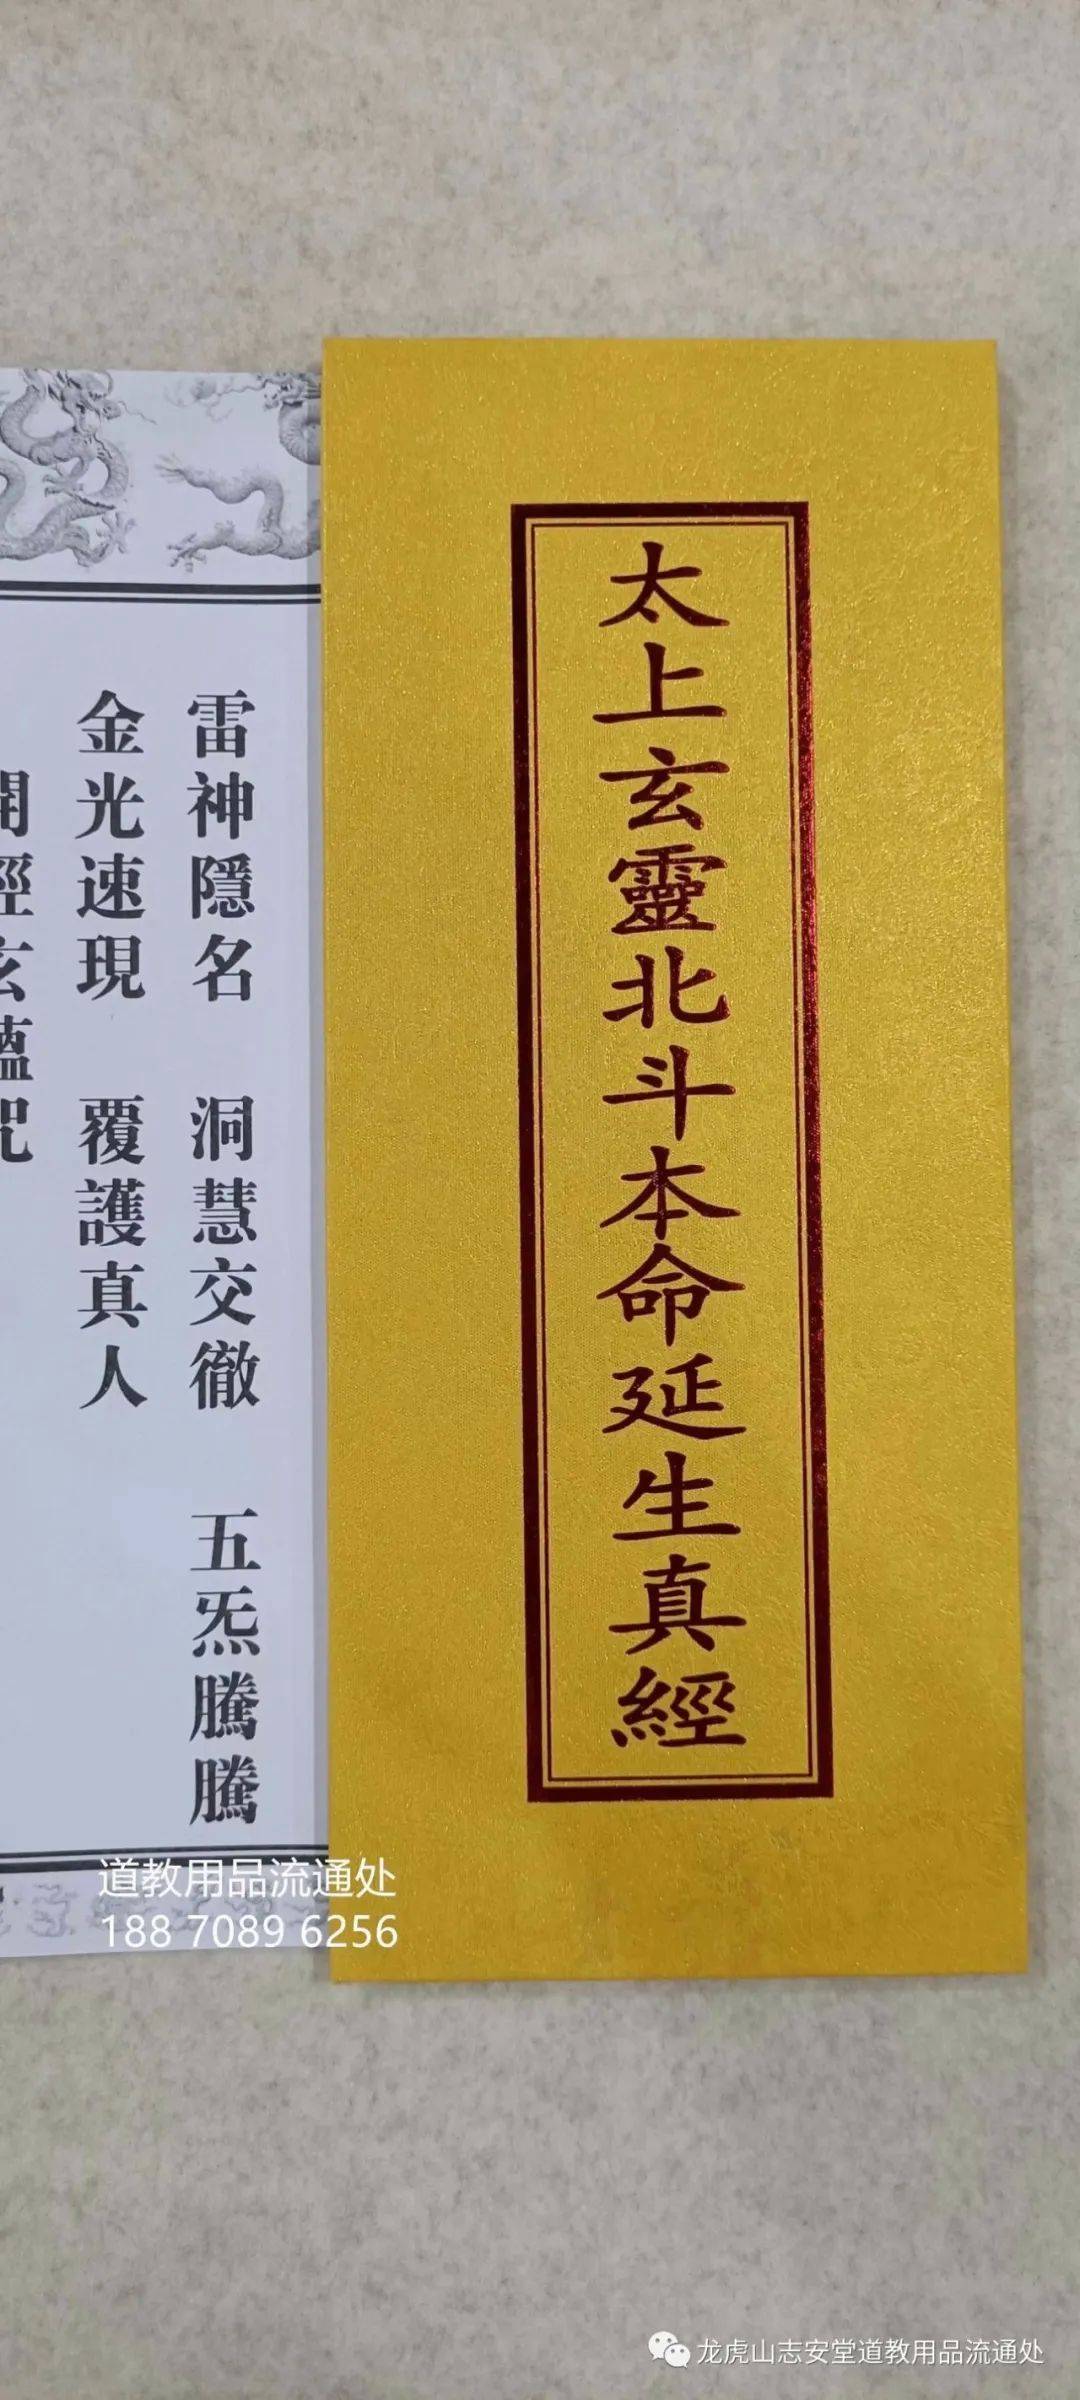 太上玄靈北斗本命延生真經
雷神隱名 洞慧交徹 五炁騰騰
金光速現 覆護真人
開經玄蘊咒
道教用品流通处
188 7089 6256
龙虎山志安堂道教用品流通处